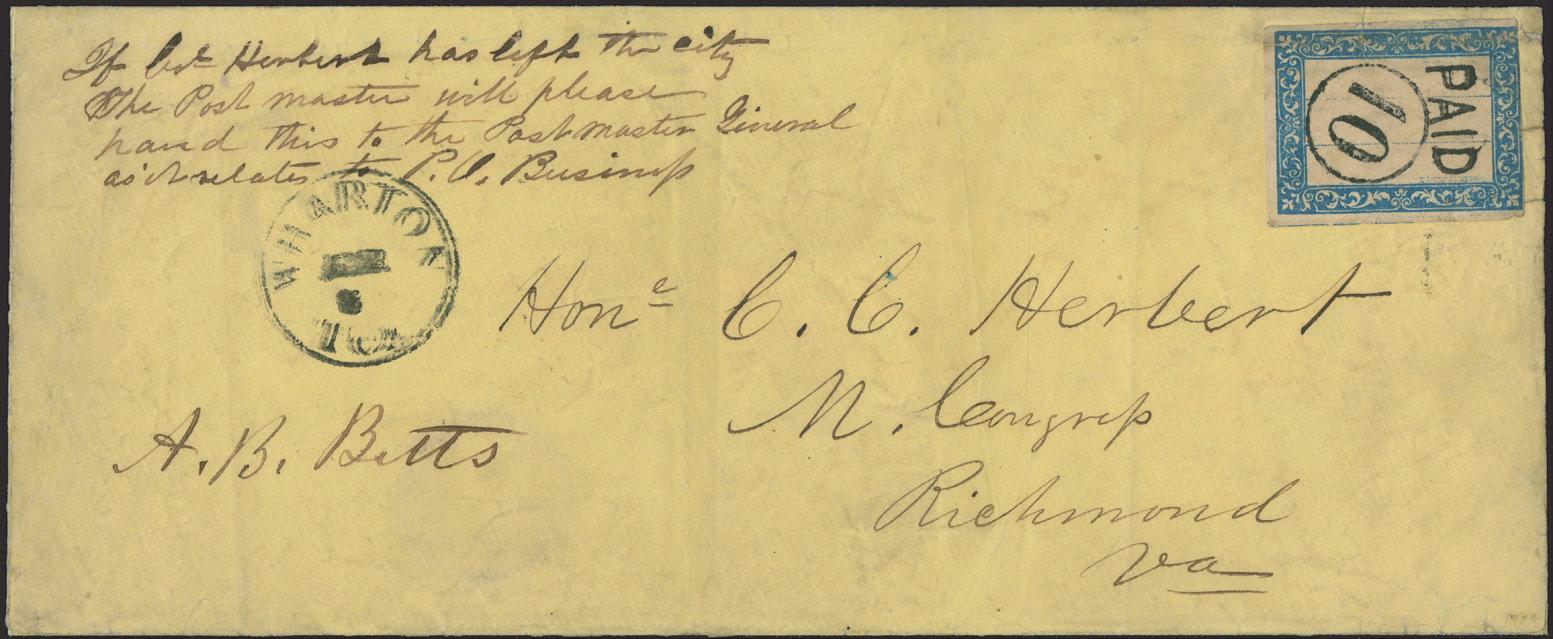 If Col. Herbert has left the city
The Post master will please
hand this to the Postmaster General
as it relates to P.O. Business
PAID
10
WHARTON
Tex
Honᵉ C. C. Herbert
M. Congress
Richmond
Va
A. B. Betts